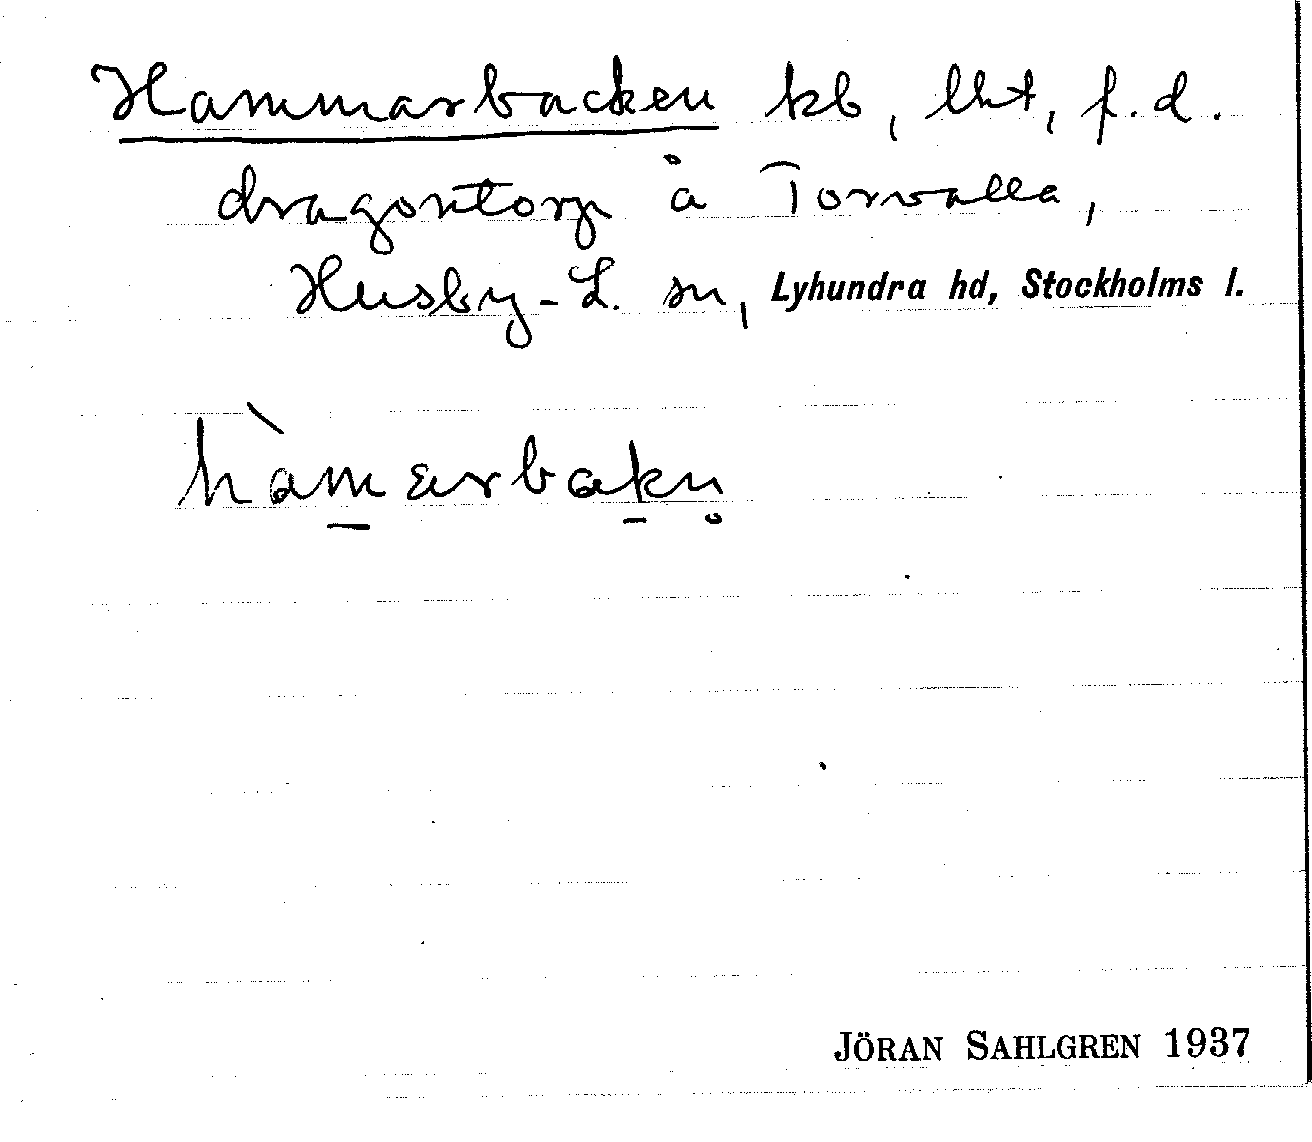 Hammarbacken kb, lht, f.d.
dragontorp å Torvalla,
Husby-L. sn, Lyhundra hd, Stockholms l.
hàm̱ərbaḵn̥
JÖRAN SAHLGREN 1937